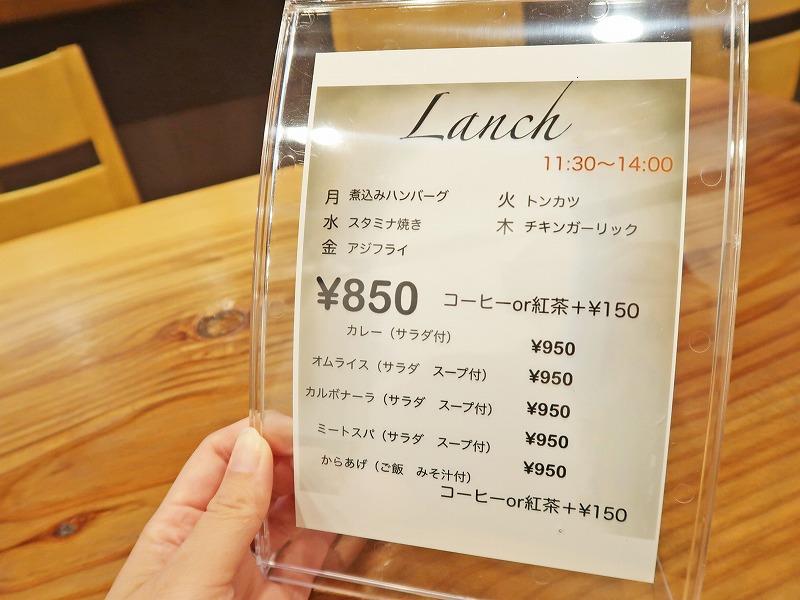 Lanch
11:30〜14:00
月 煮込みハンバーグ 火 トンカツ
水 スタミナ焼き 木 チキンガーリック
金 アジフライ
¥850 コーヒーor紅茶＋¥150
カレー（サラダ付） ¥950
オムライス（サラダ スープ付） ¥950
カルボナーラ（サラダ スープ付） ¥950
ミートスパ（サラダ スープ付） ¥950
からあげ（ご飯 みそ汁付） ¥950
コーヒーor紅茶＋¥150